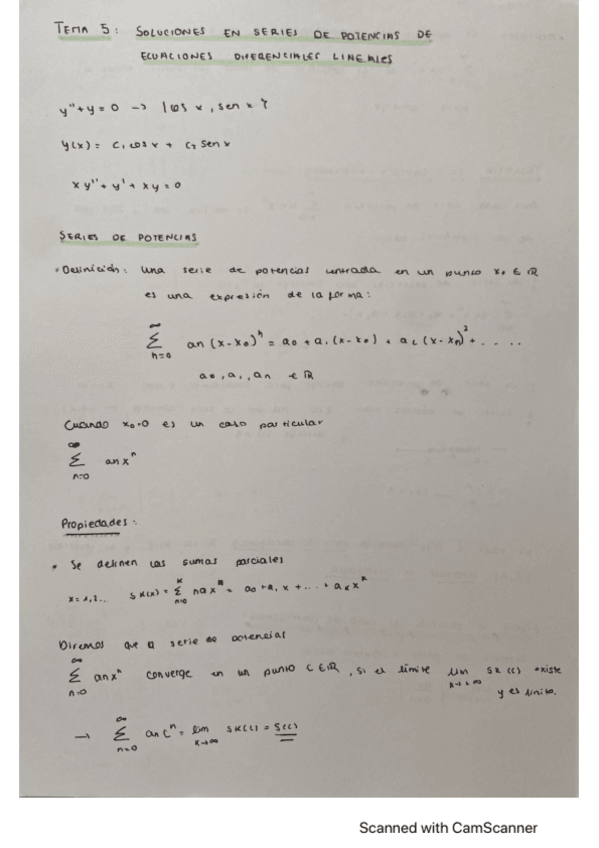 TEMA 5: SOLUCIONES EN SERIES DE POTENCIAS DE
ECUACIONES DIFERENCIALES LINEALES
y'' + y = 0 → {cos x, sen x}
y(x) = C₁ cos x + C₂ sen x
x y'' + y' + x y = 0
SERIES DE POTENCIAS
• Definición: una serie de potencias centrada en un punto x₀ ∈ ℝ
es una expresión de la forma:
∑_{n=0}^{∞} an (x-x₀)ⁿ = a₀ + a₁(x-x₀) + a₂(x-x₀)² + .....
a₀, a₁, an ∈ ℝ
Cuando x₀=0 es un caso particular
∑_{n=0}^{∞} anxⁿ
Propiedades:
• Se definen las sumas parciales
k=1,2... Sk(x) = ∑_{n=0}^{k} nax^n = a₀ + a₁x + ... + aₖxᵏ
Diremos que la serie de potencial
∑_{n=0}^{∞} anxⁿ converge en un punto C ∈ ℝ, si el límite lim_{k→∞} Sk(c) existe
y es finito.
→ ∑_{n=0}^{∞} anCⁿ = lim_{k→∞} Sk(c) = S(c)
Scanned with CamScanner